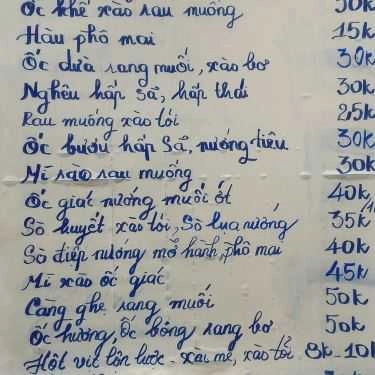 Ốc khế xào rau muống 50k
Hàu phô mai 15k
Ốc dừa rang muối, xào bơ 30k
Nghêu hấp sả, hấp thái 30k
Rau muống xào tỏi 25k
Ốc bươu hấp sả, nướng tiêu 30k
Mì xào rau muống 30k
Ốc giác nướng muối ớt 40k
Sò huyết xào tỏi, Sò lụa nướng 35k
Sò điệp nướng mỡ hành, phô mai 40k
Mì xào ốc giác 45k
Càng ghẹ rang muối 50k
Ốc hương, Ốc bông rang bơ 50k
Hột vịt lộn luộc - xào me, xào tỏi 8k - 10k